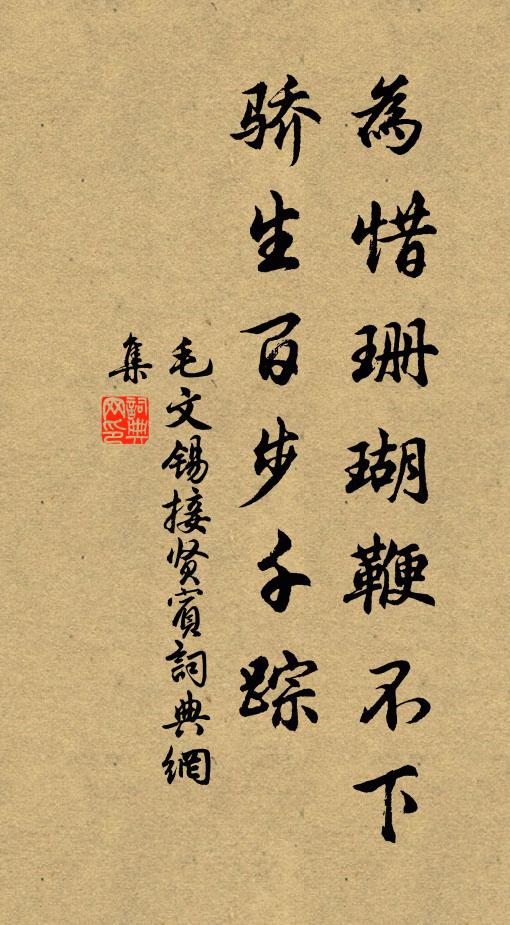 為惜珊瑚鞭不下
骄生百步千踪
毛文锡接贤賓詞典網
集
詞典网印